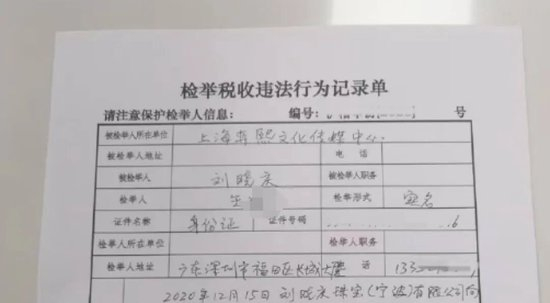 检举税收违法行为记录单
请注意保护检举人信息： 编号： 号
被检举人所在单位 上海弄熙文化传媒中心
被检举人地址 电 话
被检举人 刘晓庆 被检举人职务
检举人 检举形式 实名
证件名称 身份证 证件号码 6
检举人所在单位 检举人职务
检举人地址 广东深圳市福田区长城大厦 电 话 133
2020年12月15日 刘晓庆珠宝(宁波)有限公司向